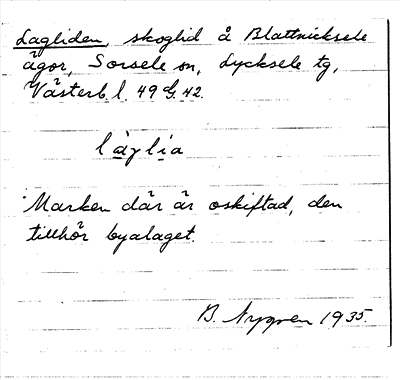 Lagliden, skoglid å Blattnicksele
ägor, Sorsele sn, Lycksele tg,
Västerb. l. 49 G. 42.
làglìa
Marken där är oskiftad, den
tillhör byalaget.
B. Nygren 1935.